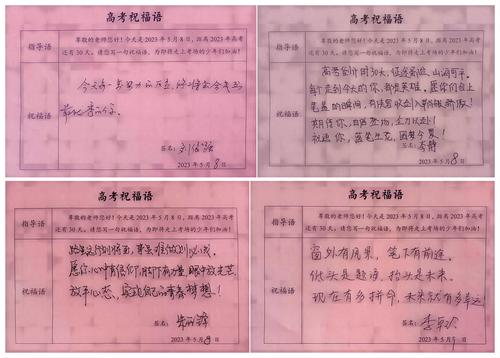 高考祝福语
指导语
尊敬的老师您好！今天是 2023 年 5 月 8 日，距离 2023 年高考
还有 30 天。请您写一句祝福语，为即将走上考场的少年们加油！
祝福语
今天
签名：
2023 年 5 月 8 日
高考祝福语
指导语
尊敬的老师您好！今天是 2023 年 5 月 8 日，距离 2023 年高考
还有 30 天。请您写一句祝福语，为即将走上考场的少年们加油！
祝福语
高考倒计时30天，征途漫漫，山海可平。
每个走到今天的你，都是英雄。愿你们合上
笔盖的瞬间，有侠客收剑入鞘的骄傲！
期待你，自信登场，全力以赴！
祝愿你，落笔生花，圆梦今夏！
签名：李静
2023 年 5 月 8 日
高考祝福语
指导语
尊敬的老师您好！今天是 2023 年 5 月 8 日，距离 2023 年高考
还有 30 天。请您写一句祝福语，为即将走上考场的少年们加油！
祝福语
愿你心中有信仰，脚下有力量，眼中放光芒
放平心态，实现自己的青春梦想！
签名：
2023 年 5 月 8 日
高考祝福语
指导语
尊敬的老师您好！今天是 2023 年 5 月 8 日，距离 2023 年高考
还有 30 天。请您写一句祝福语，为即将走上考场的少年们加油！
祝福语
窗外有风景，笔下有前途。
低头是题海，抬头是未来。
现在有多拼命，未来就有多幸运
签名：李
2023 年 5 月 日